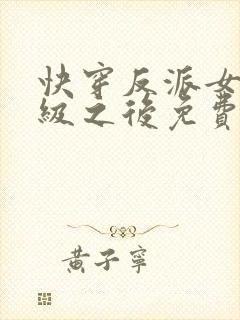 快穿反派女
級之後免費
黃子寧